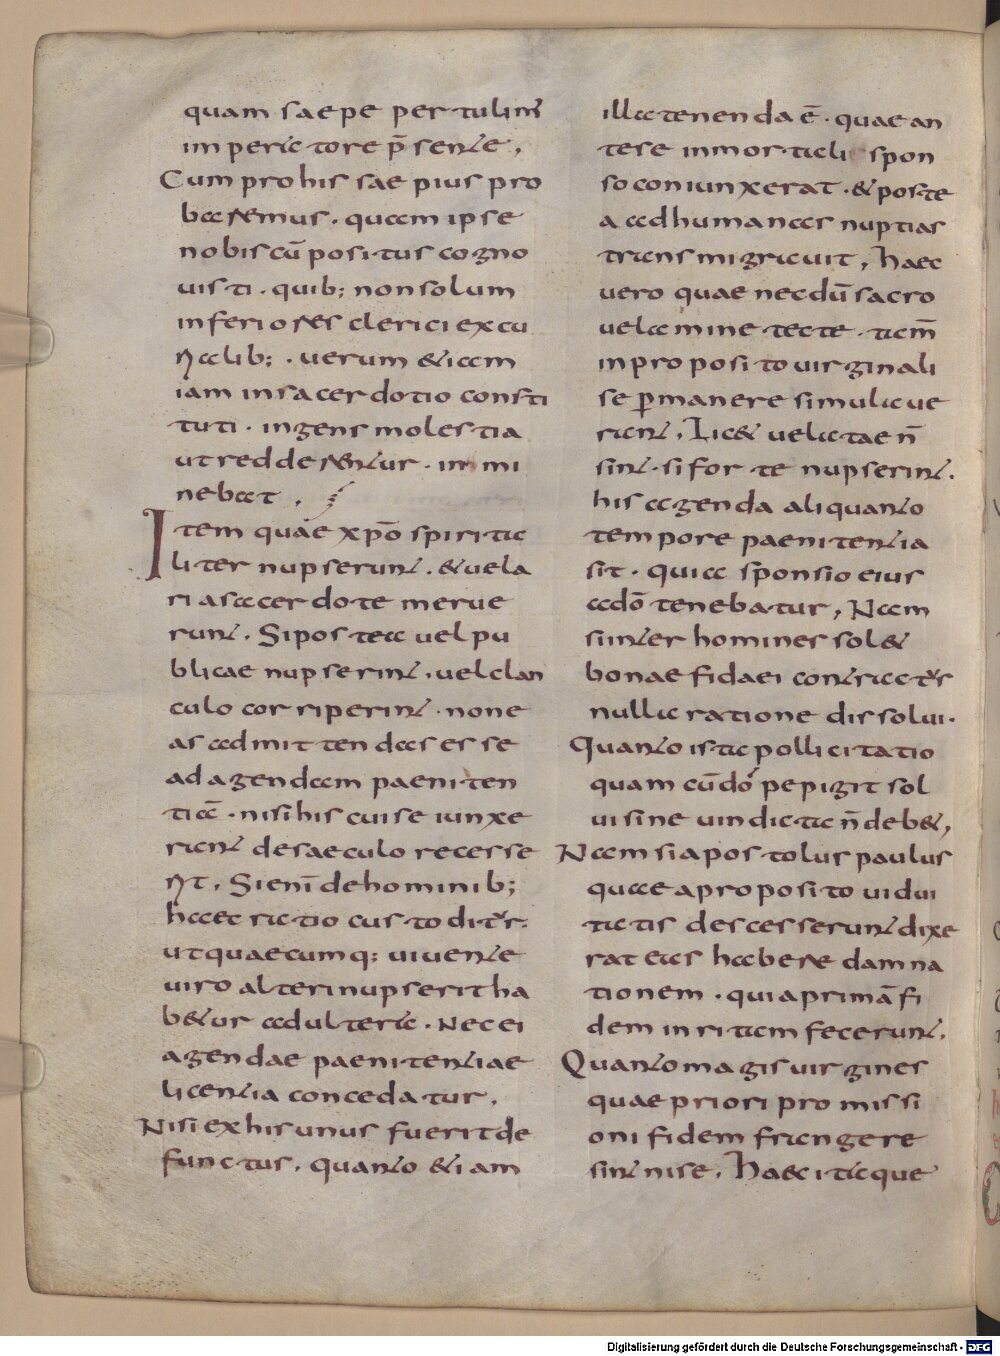 quam saepe pertulim̄
imperitore p̄sente,
Cum pro his saepius pro
baremus. quam ipse
nobiscū positus cogno
uisti. quib; non solum
inferiores clerici excu
ralib;. uerum &iam
iam in sacerdotio consti
tuti. ingens molestia
ut redderentur. immi
nebat,
Item quae xp̄o spirita
liter nupserunt. & uela
ri a sacerdote merue
runt. Si postea uel pu
blicae nupserint. uel clan
culo corriperint. non e
as admittendas esse
ad agendam paeniten
tiā. nisi his cui se iunxe
rant de saeculo recesse
rit. Si enī de hominib;
haec ratio custodit̄r.
ut quaecumq; uiuente
uiro alteri nupserit ha
b&ur adultera. Nec ei
agendae paenitentiae
licentia concedatur.
Nisi ex his unus fuerit de
functus. quanto &iam
illa tenenda ē. quae an
te se inmortali spon
so coniunxerat. & poste
a ad humanas nuptias
transmigrauit, Haec
uero quae necdū sacro
uelamine tecte. tam̄
in proposito uirginali
se p̄manere simulaue
rant. Lic& uelatae n̄
sint. si forte nupserint.
his agenda aliquanto
tempore paenitentia
sit. quia sponsio eius
a dō tenebatur, Nam
si inter homines sol&
bonae fidaei contract̄r
nulla ratione dissolui.
Quanto ista pollicitatio
quam cū dō pepigit sol
ui sine uindicta n̄ deb&,
Nam si apostolus paulus
quae a proposito uidui
tatis descesserunt dixe
rat eas habere damna
tionem. quia primā fi
dem inritam fecerunt.
Quanto magis uirgines
quae priori promissi
oni fidem frangere
sint nise. Haec itaque
Digitalisierung gefördert durch die Deutsche Forschungsgemeinschaft - DFG